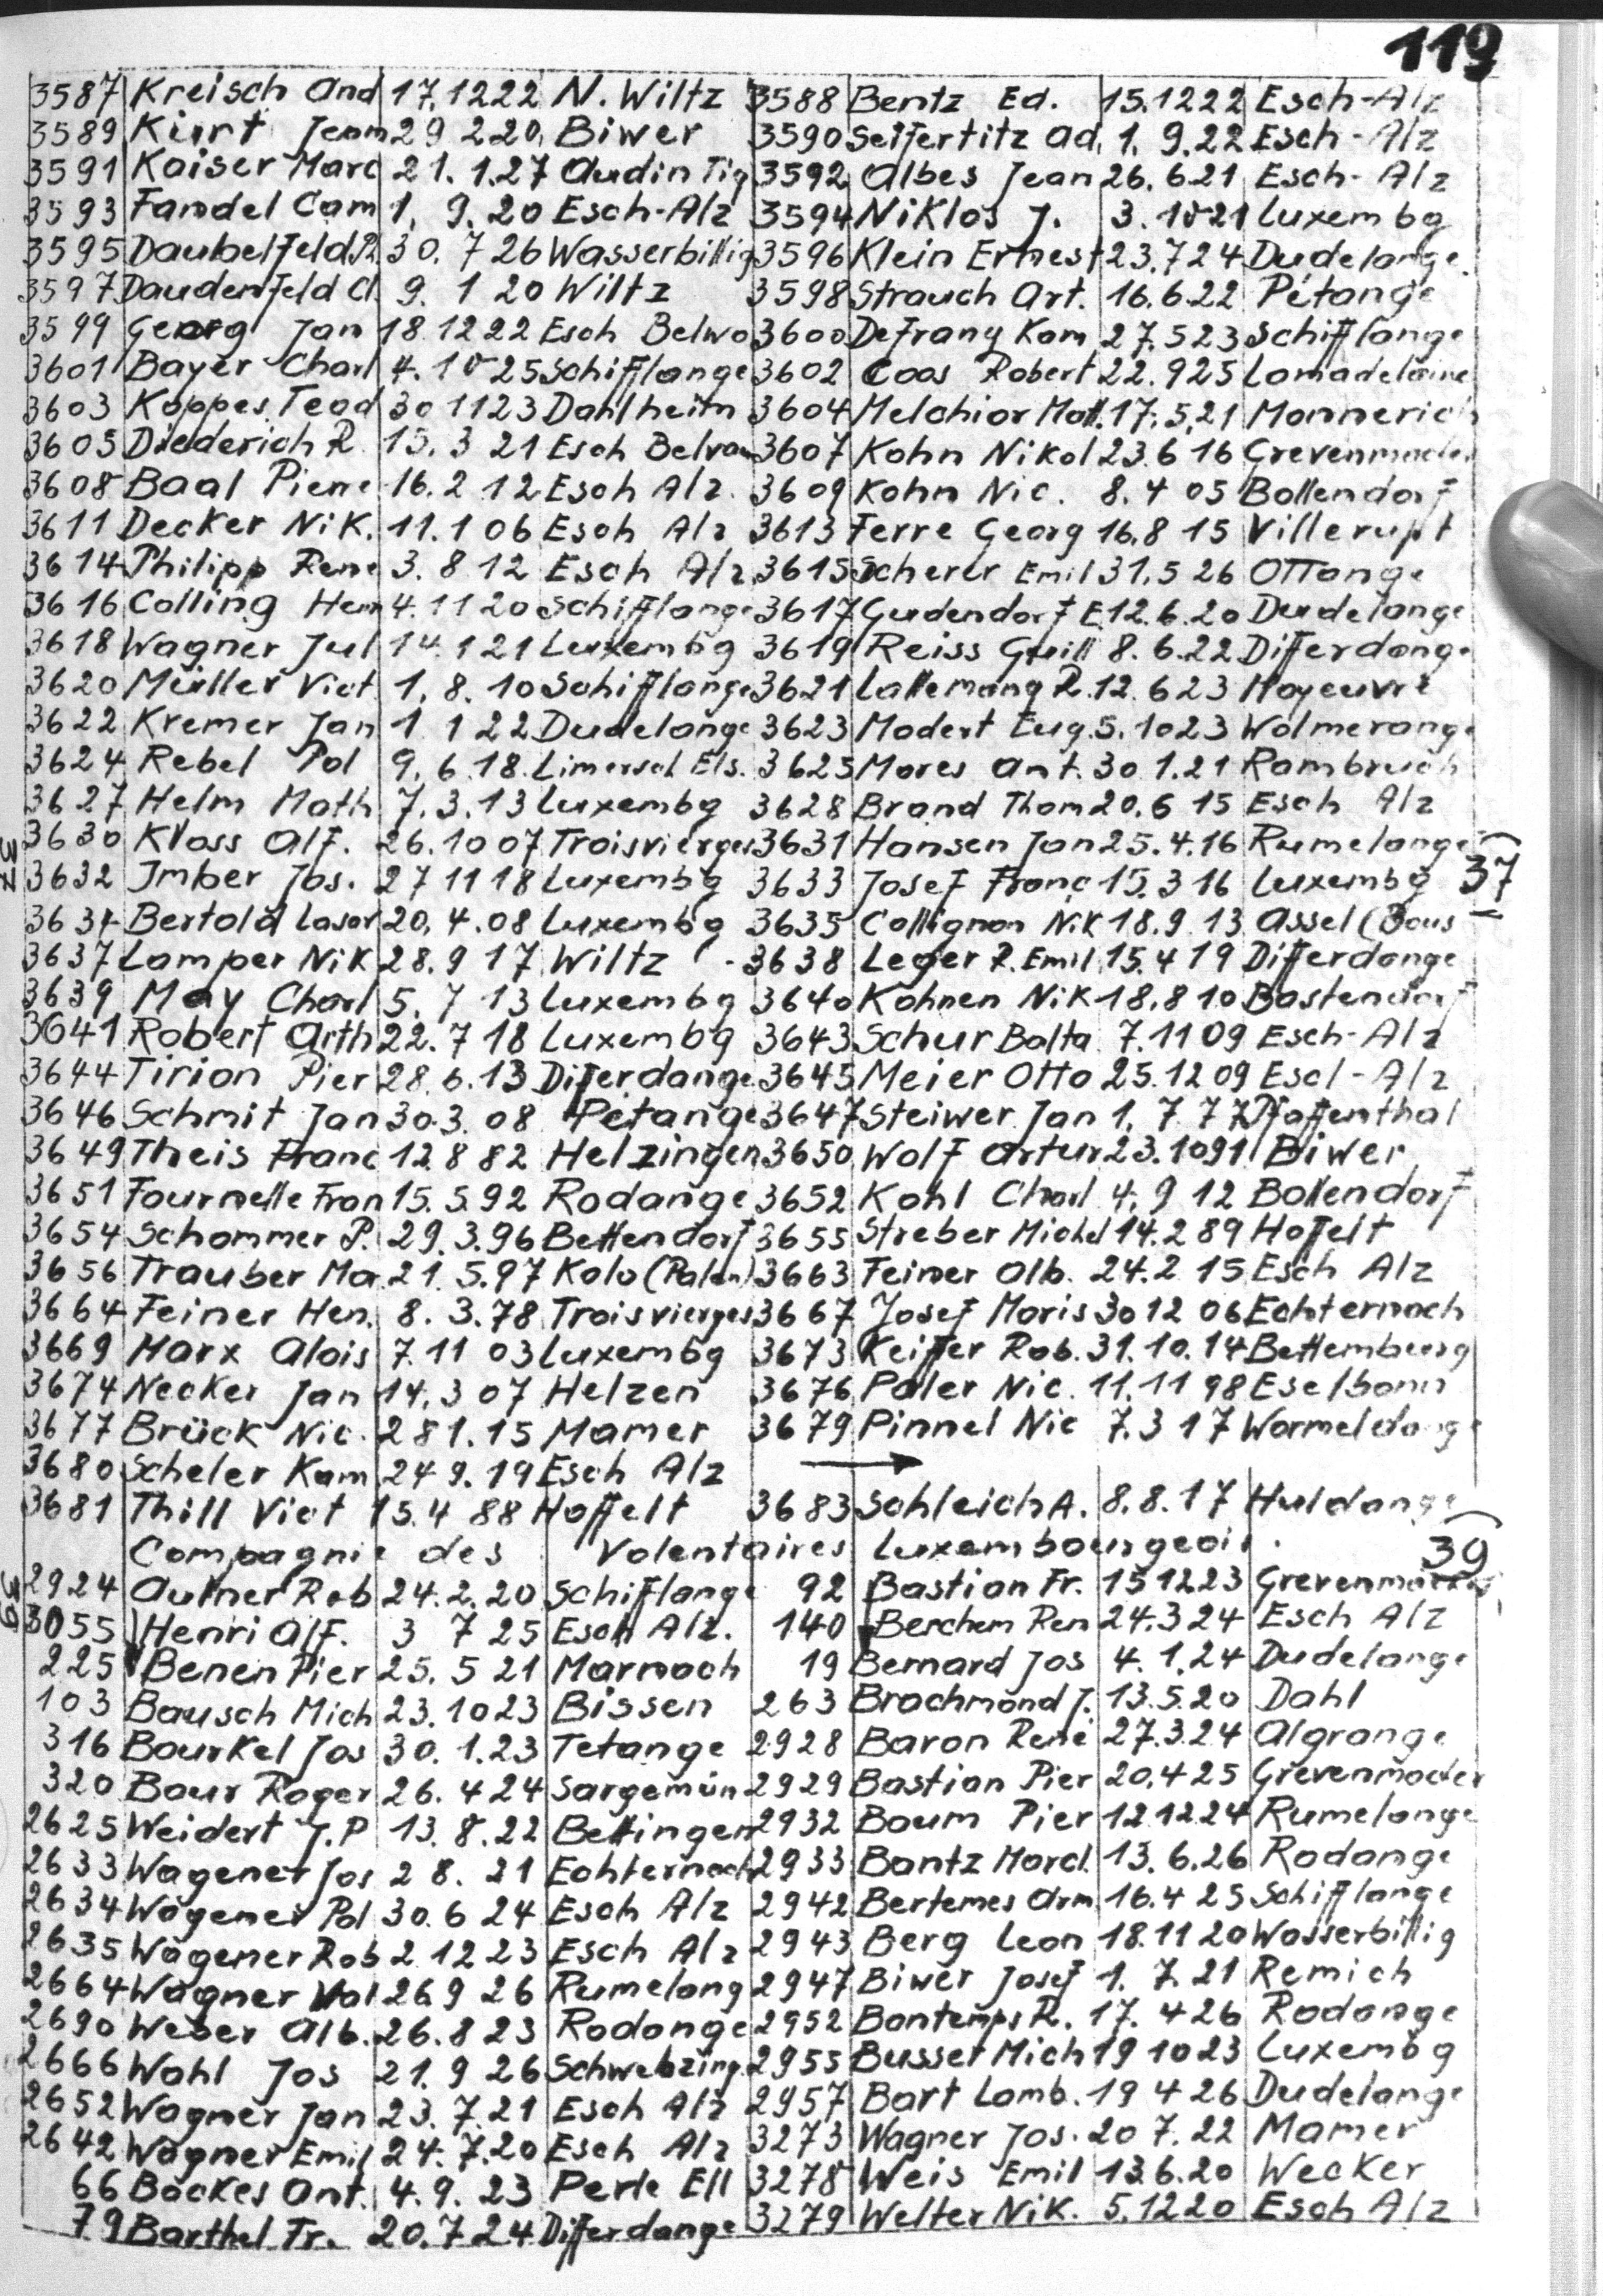 119
3587 Kreisch And 17.1222 N. Wiltz 3588 Bentz Ed. 15.1222 Esch-Alz
3589 Kirt Jean 29 2.20 Biwer 3590 Seifertitz Ad. 1. 9.22 Esch-Alz
3591 Kaiser Marc 21. 1.27 Audin Tig 3592 Albes Jean 26. 6 21 Esch-Alz
3593 Fandel Cam 1. 9. 20 Esch-Alz 3594 Niklos J. 3. 1021 Luxembg
3595 Daubelfeld P. 30. 7 26 Wasserbillig 3596 Klein Ernest 23.7 24 Dudelange
3597 Daudenfeld Cl. 9. 1 20 Wiltz 3598 Strauch Art. 16.6.22 Pétange
3599 Georg Jan 18.1222 Esch Belvo 3600 Defrang Kam 27.5 23 Schifflange
3601 Bayer Charl 4. 10 25 Schifflange 3602 Coos Robert 22. 9 25 Lamadelaine
3603 Koppes Teod 30 1123 Dahlheim 3604 Melchior Mat. 17. 5.21 Monnerich
3605 Diederich R. 15. 3 21 Esch Belvau 3607 Kohn Nikol 23.6 16 Grevenmacher
3608 Baal Pierre 16. 2 12 Esch Alz. 3609 Kohn Nic. 8. 4 05 Bollendorf
3611 Decker Nik. 11. 1 06 Esch Alz 3613 Ferre Georg 16.8 15 Villerupt
3614 Philipp Rene 3. 8 12 Esch Alz 3615 Scherer Emil 31.5 26 Ottange
3616 Colling Hen 4. 11 20 Schifflange 3617 Gudendorf E. 12. 6. 20 Dudelange
3618 Wagner Jul 14. 1 21 Luxembg 3619 Reiss Guill 8. 6. 22 Differdange
3620 Müller Vict. 1. 8. 10 Schifflange 3621 Lallemang R. 12. 6 23 Hayeuvre
3622 Kremer Jan 1. 1 22 Dudelange 3623 Modert Eug. 5. 1023 Wolmerange
3624 Rebel Pol 9. 6. 18. Limersel Els. 3625 Mores Ant. 30 1.21 Rambruch
3627 Helm Math 7. 3. 13 Luxembg 3628 Brand Thom 20. 6 15 Esch Alz
3630 Kloss Alf. 26. 10 07 Troisvierges 3631 Hansen Jan 25. 4. 16 Rumelange
3632 Imber Jos. 27 11 18 Luxembg 3633 Josef Franc 15. 3 16 Luxembg 37
3634 Bertold Lasar 20. 4. 08 Luxembg 3635 Collignon Nik 18. 9. 13 Assel (Bous
3637 Lamper Nik 28. 9 17 Wiltz 3638 Leger R. Emil 15. 4 19 Differdange
3639 May Charl 5. 7 13 Luxembg 3640 Kohnen Nik 18. 8 10 Bastendorf
3641 Robert Arth 22. 7 18 Luxembg 3643 Schur Balta. 7. 11 09 Esch-Alz
3644 Tirion Pier 28. 6. 13 Diferdange 3645 Meier Otto 25. 12 09 Escl-Alz
3646 Schmit Jan 30.3. 08 Pétange 3647 Steiwer Jan 1. 7. 77 Pfaffenthal
3649 Theis Franc 12 8 82 Helzingen 3650 Wolf Artur 23. 1091 Biwer
3651 Fournelle Fran 15. 5.92 Rodange 3652 Kohl Charl 4. 9 12 Bollendorf
3654 Schommer P. 29. 3. 96 Bettendorf 3655 Streber Michel 14. 2 89 Hoffelt
3656 Trauber Mar. 21. 5. 97 Kolo (Polen) 3663 Feiner Alb. 24. 2 15 Esch Alz
3664 Feiner Hen. 8. 3. 78 Troisvierges 3667 Josef Moris 30 12 06 Echternach
3669 Marx Alois 7. 11 03 Luxembg 3673 Keiffer Rob. 31. 10. 14 Bettemburg
3674 Necker Jan 14. 3 07 Helzen 3676 Paler Nic. 11. 11 98 Eselborn
3677 Brück Nic. 28 1. 15 Mamer 3679 Pinnel Nic 7. 3 17 Wormeldange
3680 Scheler Kam 24 9. 19 Esch Alz
3681 Thill Vict 15. 4 88 Hoffelt 3683 Schleich A. 8. 8. 17 Huldange
Compagnie des Volentaires Luxembourgeois.
39
2924 Autner Rob 24. 2. 20 Schifflange 92 Bastian Fr. 15 1223 Grevenmacher
3055 Henri Alf. 3 7 25 Esch Alz. 140 Berchem Ren 24. 3 24 Esch Alz
225 Benen Pier 25. 5 21 Marnach 19 Bernard Jos 4. 1. 24 Dudelange
103 Bausch Mich 23. 1023 Bissen 263 Brachmond J. 13. 5. 20 Dahl
316 Bourkel Jos 30. 1. 23 Tetange 2928 Baron René 27. 3. 24 Algrange
320 Baur Roger 26. 4 24 Sargemün 2929 Bastian Pier 20. 4 25 Grevenmacher
2625 Weidert J.P 13. 8. 22 Bettingen 2932 Baum Pier 12. 12 24 Rumelange
2633 Wagener Jos 2 8. 21 Echternach 2933 Bantz Marcl. 13. 6. 26 Rodange
2634 Wagener Pol 30. 6 24 Esch Alz 2942 Bertemes Arm. 16. 4 25 Schifflange
2635 Wagener Rob 2. 12 23 Esch Alz 2943 Berg Leon 18. 11 20 Wasserbillig
2664 Wagner Val 26 9 26 Rumelang 2947 Biwer Josef 1. 7. 21 Remich
2690 Weber Alb. 26. 8 23 Rodange 2952 Bontemps R. 17. 4 26 Rodange
2666 Wahl Jos 21. 9 26 Schwebzing. 2955 Busset Mich 19 10 23 Luxembg
2652 Wagner Jan 23. 7. 21 Esch Alz 2957 Bart Lamb. 19 4 26 Dudelange
2642 Wagner Emil 24. 7. 20 Esch Alz 3273 Wagner Jos. 20 7. 22 Mamer
66 Backes Ant. 4. 9. 23 Perle Ell 3278 Weis Emil 13. 6. 20 Wecker
79 Barthel Fr. 20. 7 24 Differdange 3279 Welter Nik. 5. 12 20 Esch Alz